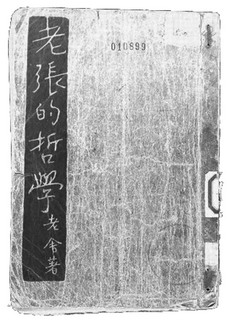 老張的哲學
老舍著
010899